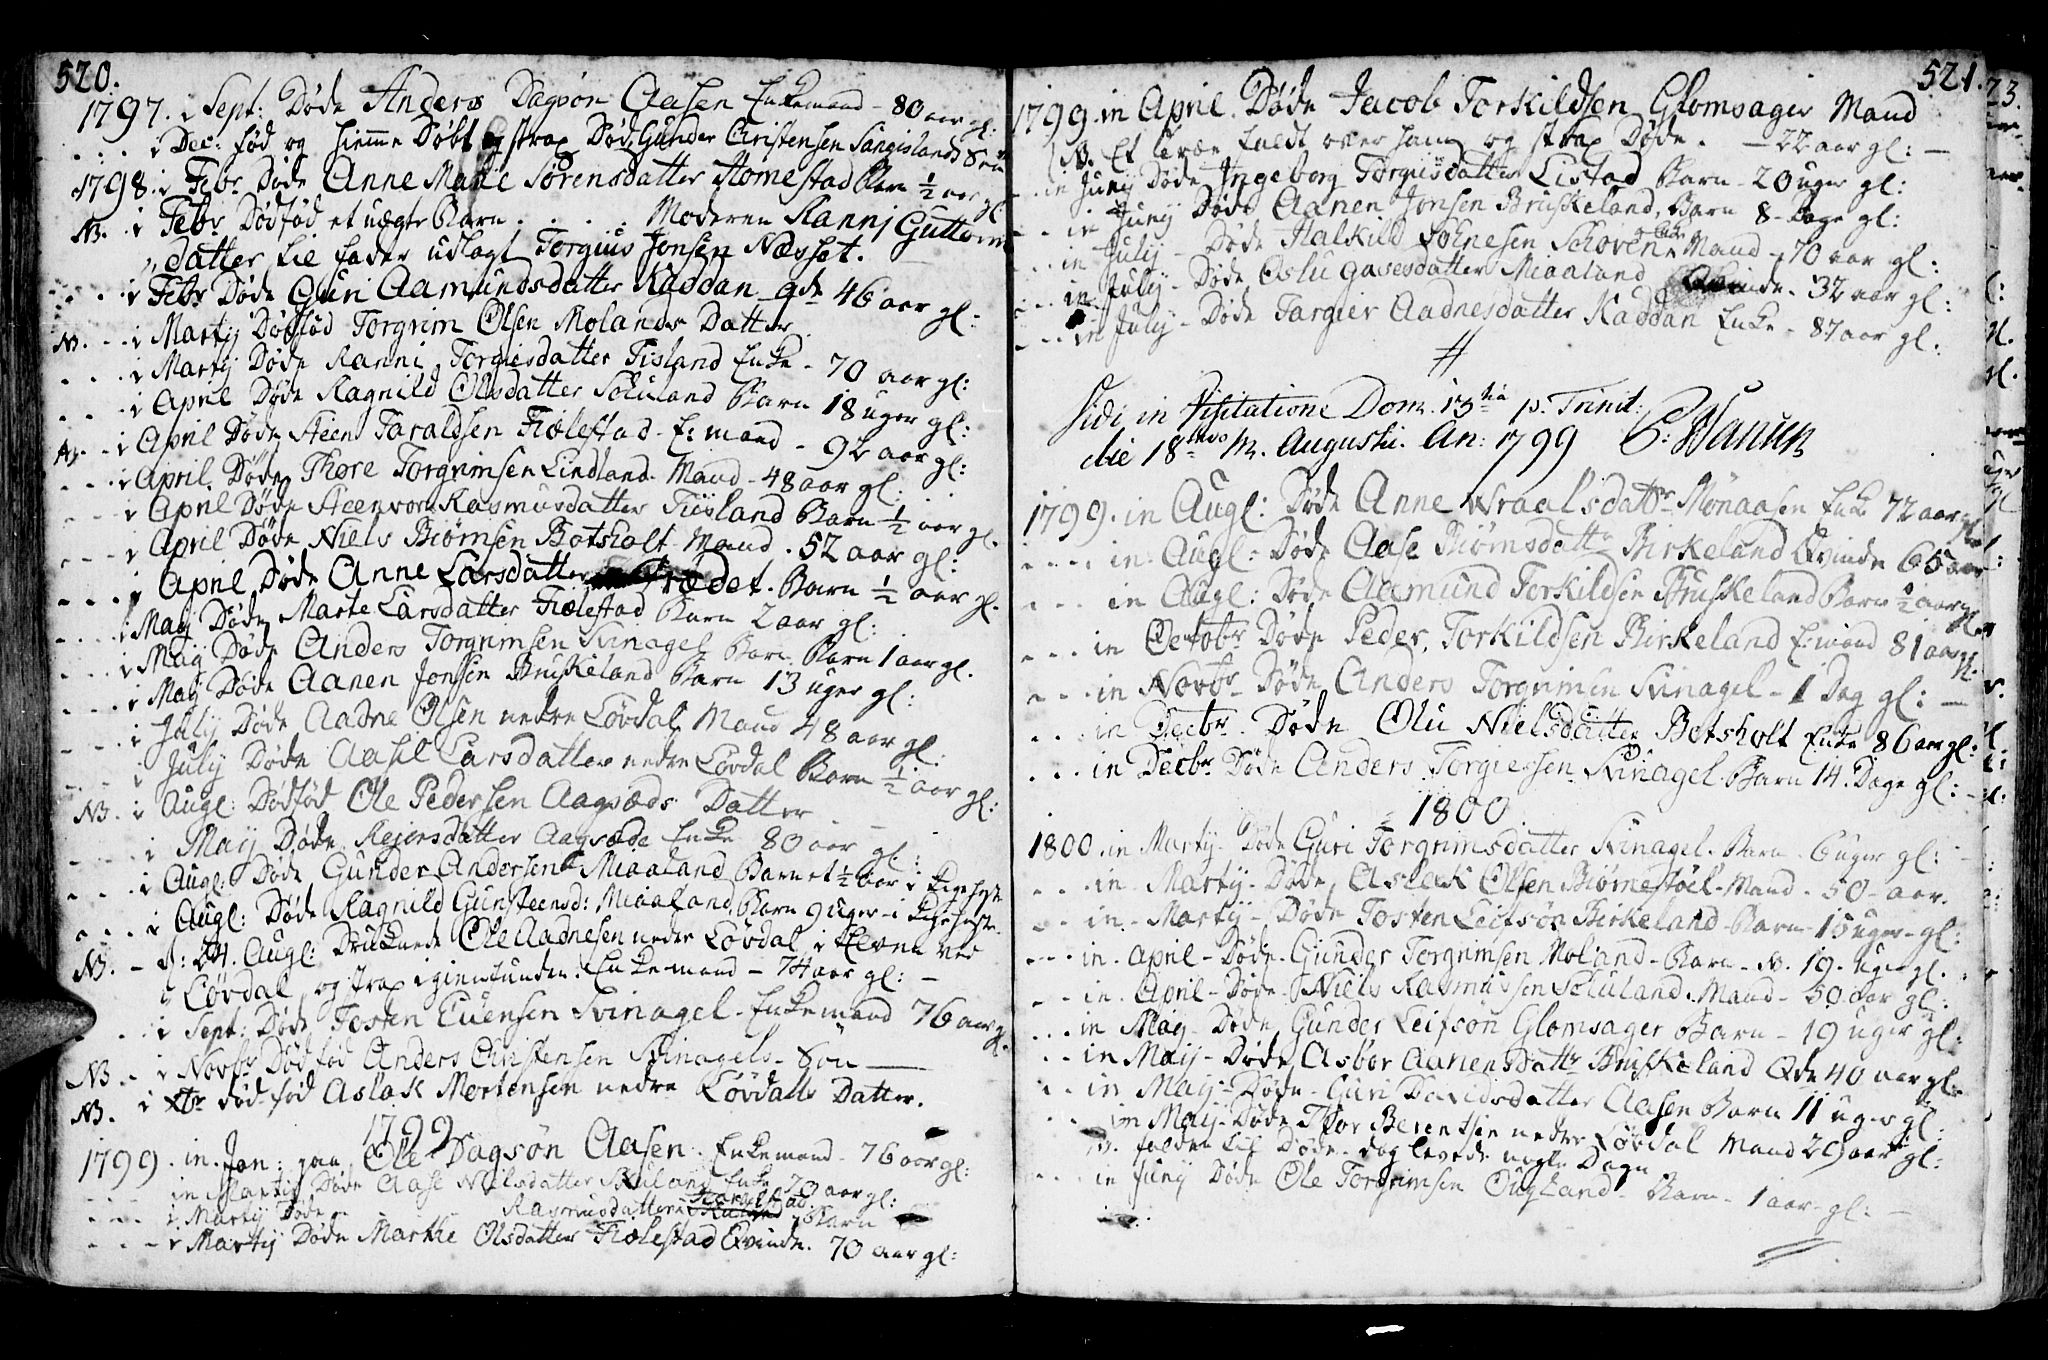 520.
1797. i Sept: Døde Anders Dagsøn Aasen Enkemand - 80 aar gl:
i Dec: fød og hiemme Døbt og strax Død Gunder Christensen Sangislands Søn
1798. i Febr Døde Anne Marie Sørensdatter Homestad Barn ½ aar gl
NB. i Febr Dødfød et uægte Barn. Moderen Ranni Guttorm
datter til fader udlagt Torgius Jonsen Næsset.
i Febr Døde Guri Aamundsdatter Kaddan Qde 46 aar gl:
NB. i Martij Dødfød Torgrim Olsen Molands Datter
i Martij Døde Ranni Torgiesdatter Fisland Enke - 70 aar gl:
i April Døde Ragnild Olsdatter Soluland Barn 18 uger gl:
i April Døde Steen Taraldsen Fiølestad - E: mand - 92 aar gl:
i April. Døde Thore Torgrimsen Lindland. Mand - 48 aar gl:
i April Døde Steenvor Rasmusdatter Fiisland Barn ½ aar gl.
i April Døde Niels Biørnsen Botsholt - Mand. 52 aar gl:
i April Døde Anne Larsdatter Trædet. Barn ½ aar gl.
i Maij Døde Marte Larsdatter Fiølestad Barn 2 aar gl:
i Maij Døde Anders Torgrimsen Svinagel Barn Barn 1 aar gl.
i Maij Døde Aanen Jonsen Bruskeland Barn 13 uger gl:
i July Døde Aadne Olsen nedre Løvdal Mand 48 aar gl:
i July Døde Aasel Larsdatter nedre Løvdal Barn ½ aar gl:
NB. i Augl: Dødfød Ole Pedersen Aagsæds Datter
i Maij Døde Reiersdatter Aagsæde Enke 80 aar gl:
i Augl: Døde Gunder Andersen Miaaland Barn et ½ aar i
i Augl: Døde Ragnild Gunsteensd: Miaaland Barn 9 Uger - i
NB. - d: 24. Augl: Druknede Ole Aadnesen nedre Løvdal i Elven ved
Løvdal og strax igienfunden. Enkemand - 74 aar gl: -
i Sept: Døde Tosten Evensen Svinagel - Enkemand 76 aar gl.
NB. i Novbr Dødfød Anders Christensen Svinagels - Søn
NB. i Xbr død-fød Aslak Mortensen nedre Løvdalls Datter.
1799
1799. in Jan: Ole Dagsøn Aasen. Enkemand - 76 aar gl:
in Martij Døde Aase Nielsdatter Enke 70 aar gl:
i Martij Døde Rasmusdatter Barn
i Martij Døde Marthe Olsdatter Fiølestad Qvinde. 70 aar gl:
521.
1799. in April. Døde Jacob Torkildsen Glomsager Mand
NB. Et træe faldt over ham og strax Døde. - 22 aar gl: -
in Junij Døde Ingeborg Torgiisdatter Listad Barn - 20 uger gl:
in Junij Døde Aanen Jonsen Bruskeland, Barn 8 - Dage gl:
in Julij - Døde Halkild Mand - 70 aar gl:
in July - Døde Oslu Gavesdatter Miaaland Qvinde. 32 aar gl:
in July - Døde Targier Aadnesdatter Kaddan Enke - 87 aar gl:
Vidi in Visitatione Dom. 13tia p. Trinit:
die 18vo M. Augusti. An: 1799 P: Hansen
1799. in Augl: Døde Anne Wraalsdattr Mønaasen Enke 72 aar gl
in Augl: Døde Aase Biørnsdattr Birkeland Qvinde 65 aar
in Augl: Døde Aamund Torkildsen Bruskeland Barn ½ aar gl
in Octobr Døde Peder Torkildsen Birkeland E: mand 81 aar gl.
in Novbr Døde Anders Torgrimsen Svinagel - 1 Dag gl: -
in Decbr. Døde Olu Nielsdatter Botsholt Enke 86 aar gl:
in Decbr Døde Anders Torgiersen Svinagel - Barn 14. Dage gl: -
1800.
1800. in Martij - Døde Guri Torgrimsdatter Svinagel. Barn - 6 uger gl:
in - Martij - Døde Aslak Olsen Biørnestøel. Mand. 50 - aar.
in - Martij - Døde Tosten Leifsøn Birkeland - Barn 16 uger - gl:
in. April - Døde. Gunder Torgrimsen Moland - Barn - N. 19. uger gl.
in. April - Døde. Niels Rasmussen Soluland. Mand - 50 aar gl:
in Maij - Døde Gunder Leifsøn Glomsager Barn - 19 uger gl:
in Maij - Døde Asbor Aanensdattr Bruskeland Qde 40 aar gl.
in Maij - Døde - Guri Davidsdatter Aasen Barn 11 uger gl:
in Maij - Døde Thor Berentsen nedre Løvdal Mand 29 aar gl:
N. falden til Døde - dog levede nogle Dage
in Junij Døde Ole Torgrimsen Ougland - Barn - 1 aar - gl: -